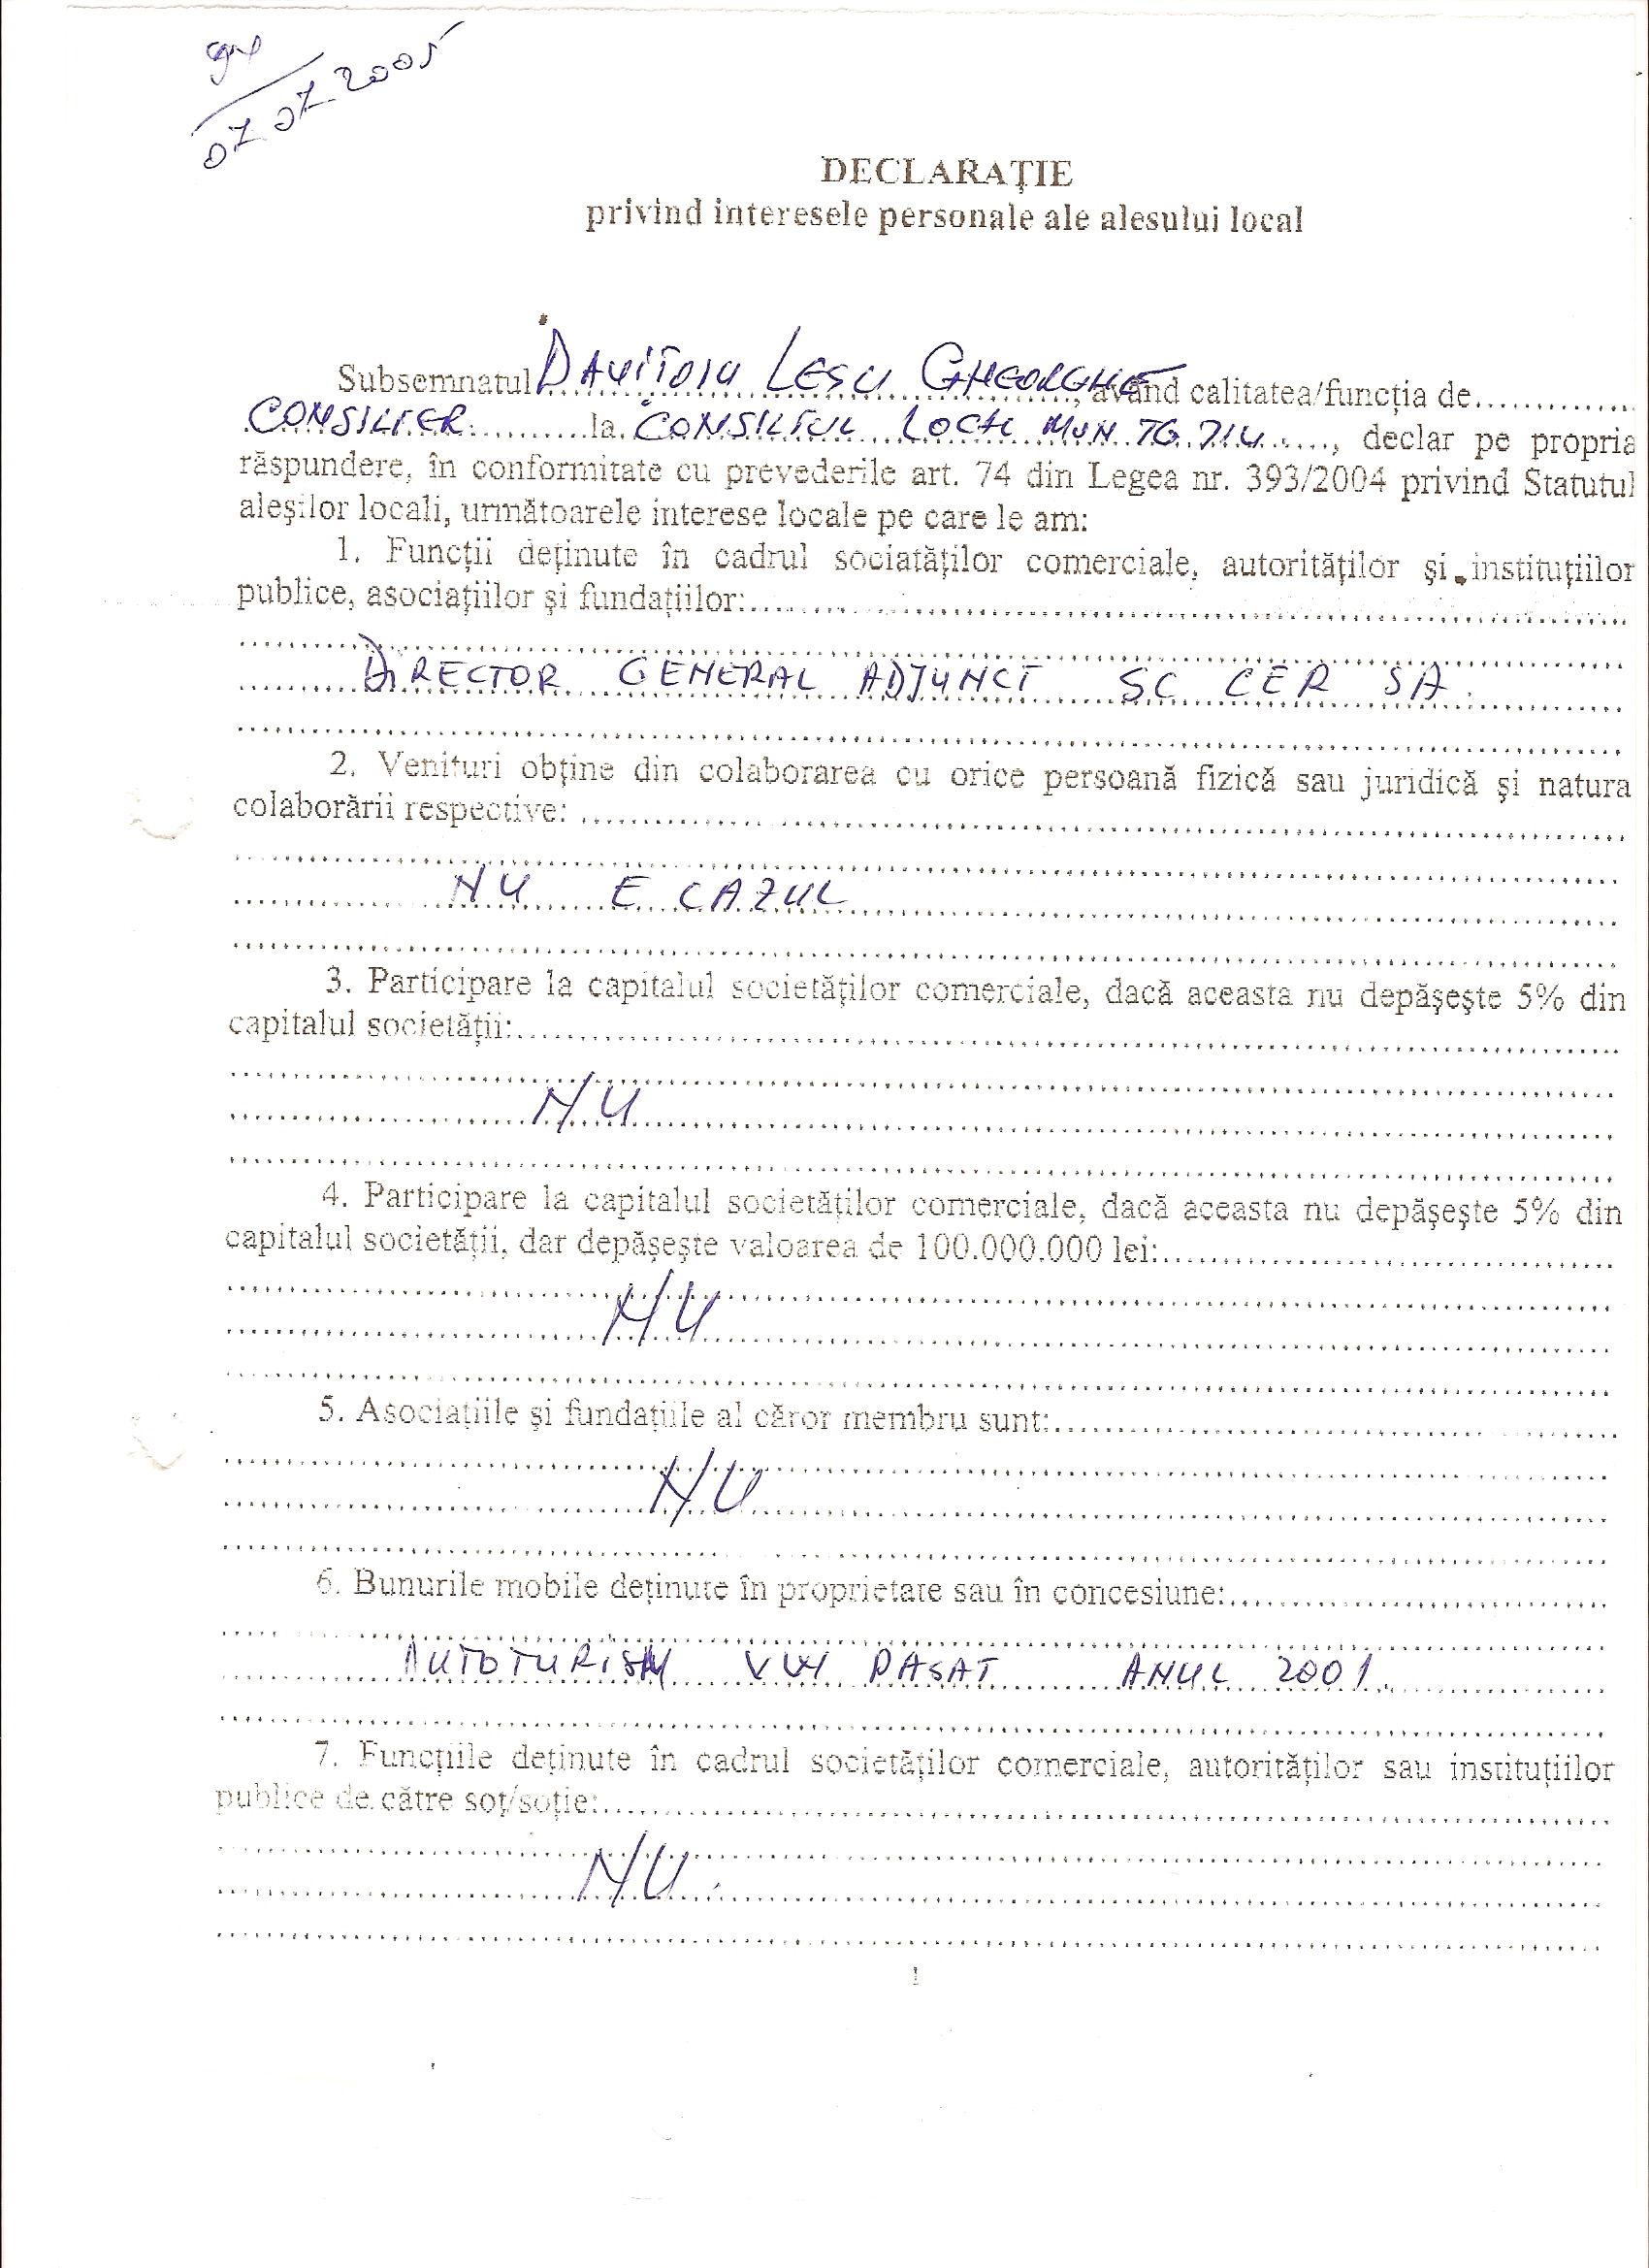 07 07 2005
DECLARAŢIE
privind interesele personale ale alesului local
Subsemnatul DAVIŢOIU LESCU GHEORGHE, având calitatea/funcţia de..............
CONSILIER..........la CONSILIUL LOCAL MUN TG JIU....., declar pe propria
răspundere, în conformitate cu prevederile art. 74 din Legea nr. 393/2004 privind Statutul
aleşilor locali, următoarele interese locale pe care le am:
1. Funcţii deţinute în cadrul sociatăţilor comerciale, autorităţilor şi instituţiilor
publice, asociaţiilor şi fundaţiilor:
DIRECTOR GENERAL ADJUNCT SC CER SA.
2. Venituri obţine din colaborarea cu orice persoană fizică sau juridică şi natura
colaborării respective:
NU E CAZUL
3. Participare la capitalul societăţilor comerciale, dacă aceasta nu depăşeşte 5% din
capitalul societăţii:
NU
4. Participare la capitalul societăţilor comerciale, dacă aceasta nu depăşeşte 5% din
capitalul societăţii, dar depăşeşte valoarea de 100.000.000 lei:
NU
5. Asociaţiile şi fundaţiile al căror membru sunt:
NU
6. Bunurile mobile deţinute în proprietate sau în concesiune:
AUTOTURISM VW PASAT ANUL 2001.
7. Funcţiile deţinute în cadrul societăţilor comerciale, autorităţilor sau instituţiilor
publice de către soţ/soţie:
NU.
1